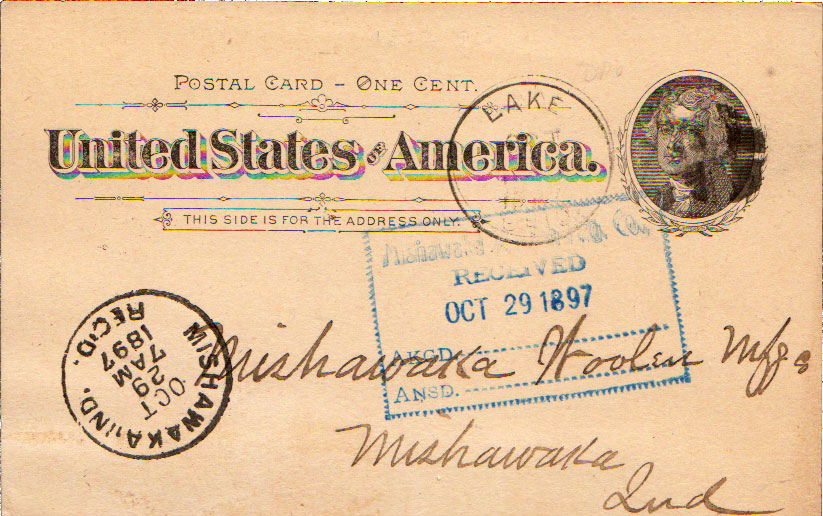 POSTAL CARD – ONE CENT.
United States OF America.
THIS SIDE IS FOR THE ADDRESS ONLY.
LAKE
Co.
RECEIVED
OCT 29 1897
AKGD.
ANSD.
MISHAWAKA, IND.
OCT
29
7 AM
1897
REC'D.
Mishawaka Woolen Mfg
Mishawaka
Ind